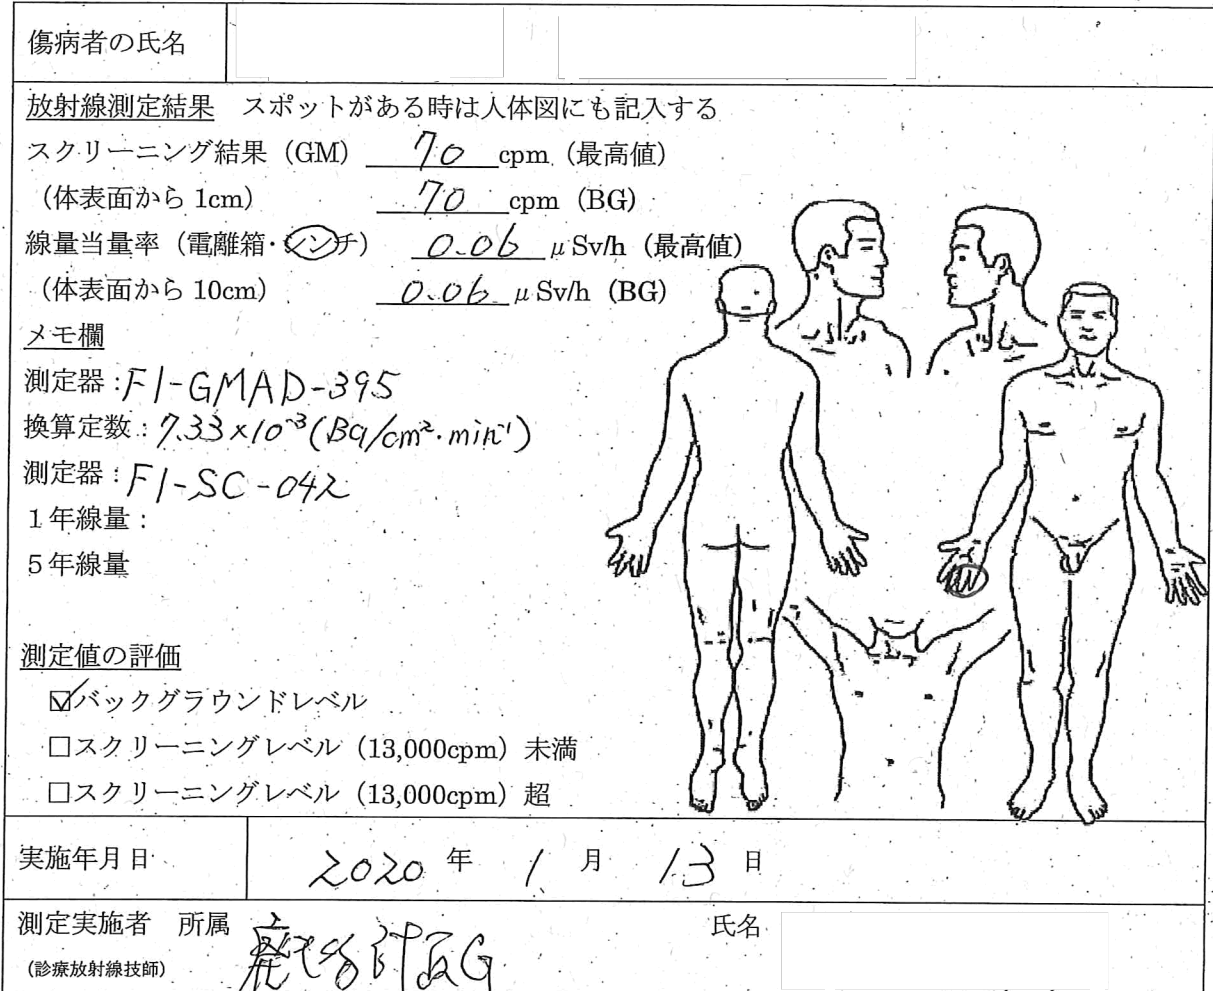 傷病者の氏名
放射線測定結果 スポットがある時は人体図にも記入する
スクリーニング結果（GM） 70 cpm（最高値）
（体表面から 1cm） 70 cpm（BG）
線量当量率（電離箱・シンチ） 0.06 μSv/h（最高値）
（体表面から 10cm） 0.06 μSv/h（BG）
メモ欄
測定器：F1-GMAD-395
換算定数：7.33×10⁻³(Bq/cm²・min⁻¹)
測定器：F1-SC-042
1年線量：
5年線量
測定値の評価
☑バックグラウンドレベル
□スクリーニングレベル（13,000cpm）未満
□スクリーニングレベル（13,000cpm）超
実施年月日 2020 年 1 月 13 日
測定実施者 所属 G 氏名
（診療放射線技師）